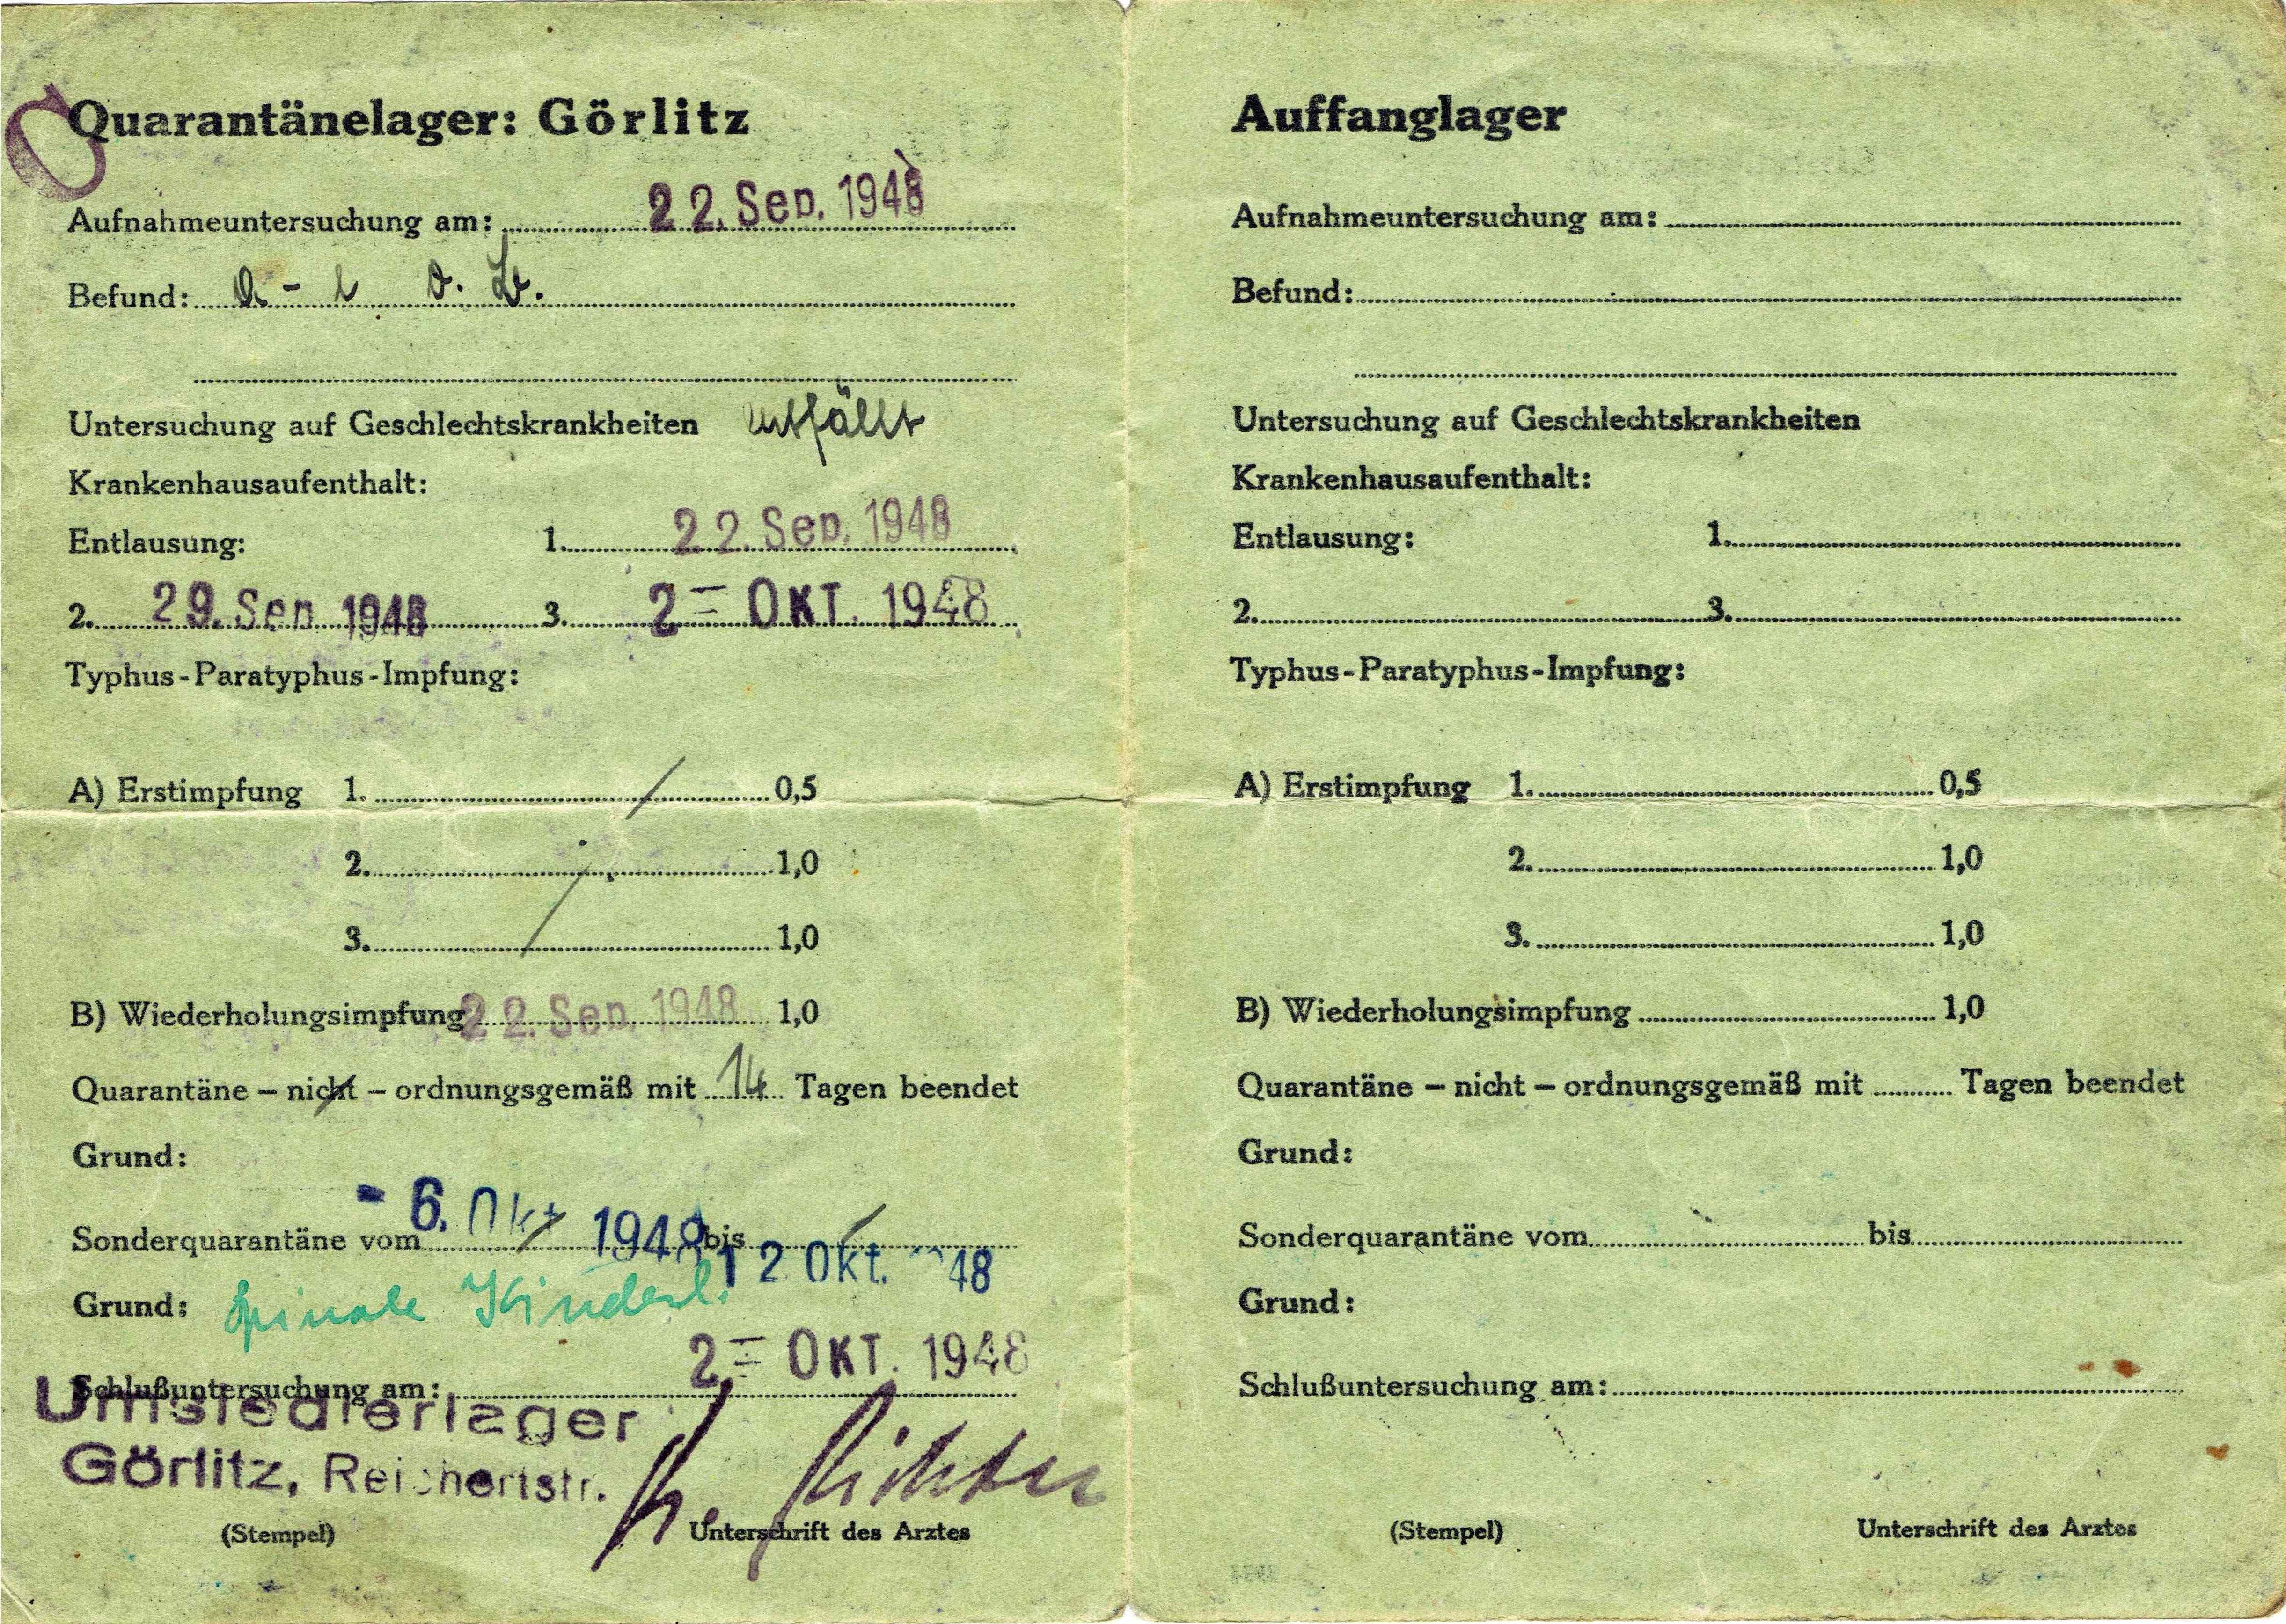 Quarantänelager: Görlitz
C
Aufnahmeuntersuchung am: 22. Sep. 1948
Befund: a - l o. B.
Untersuchung auf Geschlechtskrankheiten entfällt
Krankenhausaufenthalt:
Entlausung: 1. 22. Sep. 1948
2. 29. Sep. 1948 3. 2 - OKT. 1948
Typhus-Paratyphus-Impfung:
A) Erstimpfung 1. 0,5
2. 1,0
3. 1,0
B) Wiederholungsimpfung 22. Sep. 1948 1,0
Quarantäne – nicht – ordnungsgemäß mit 14 Tagen beendet
Grund:
Sonderquarantäne vom - 6. Okt 1948 bis 12 Okt. 48
Grund: spinale Kinderl.
2 - OKT. 1948
Schlußuntersuchung am:
Umsiedlerlager
Görlitz, Reichertstr.
Richter
(Stempel) Unterschrift des Arztes
Auffanglager
Aufnahmeuntersuchung am:
Befund:
Untersuchung auf Geschlechtskrankheiten
Krankenhausaufenthalt:
Entlausung: 1.
2. 3.
Typhus-Paratyphus-Impfung:
A) Erstimpfung 1. 0,5
2. 1,0
3. 1,0
B) Wiederholungsimpfung 1,0
Quarantäne – nicht – ordnungsgemäß mit Tagen beendet
Grund:
Sonderquarantäne vom bis
Grund:
Schlußuntersuchung am:
(Stempel) Unterschrift des Arztes